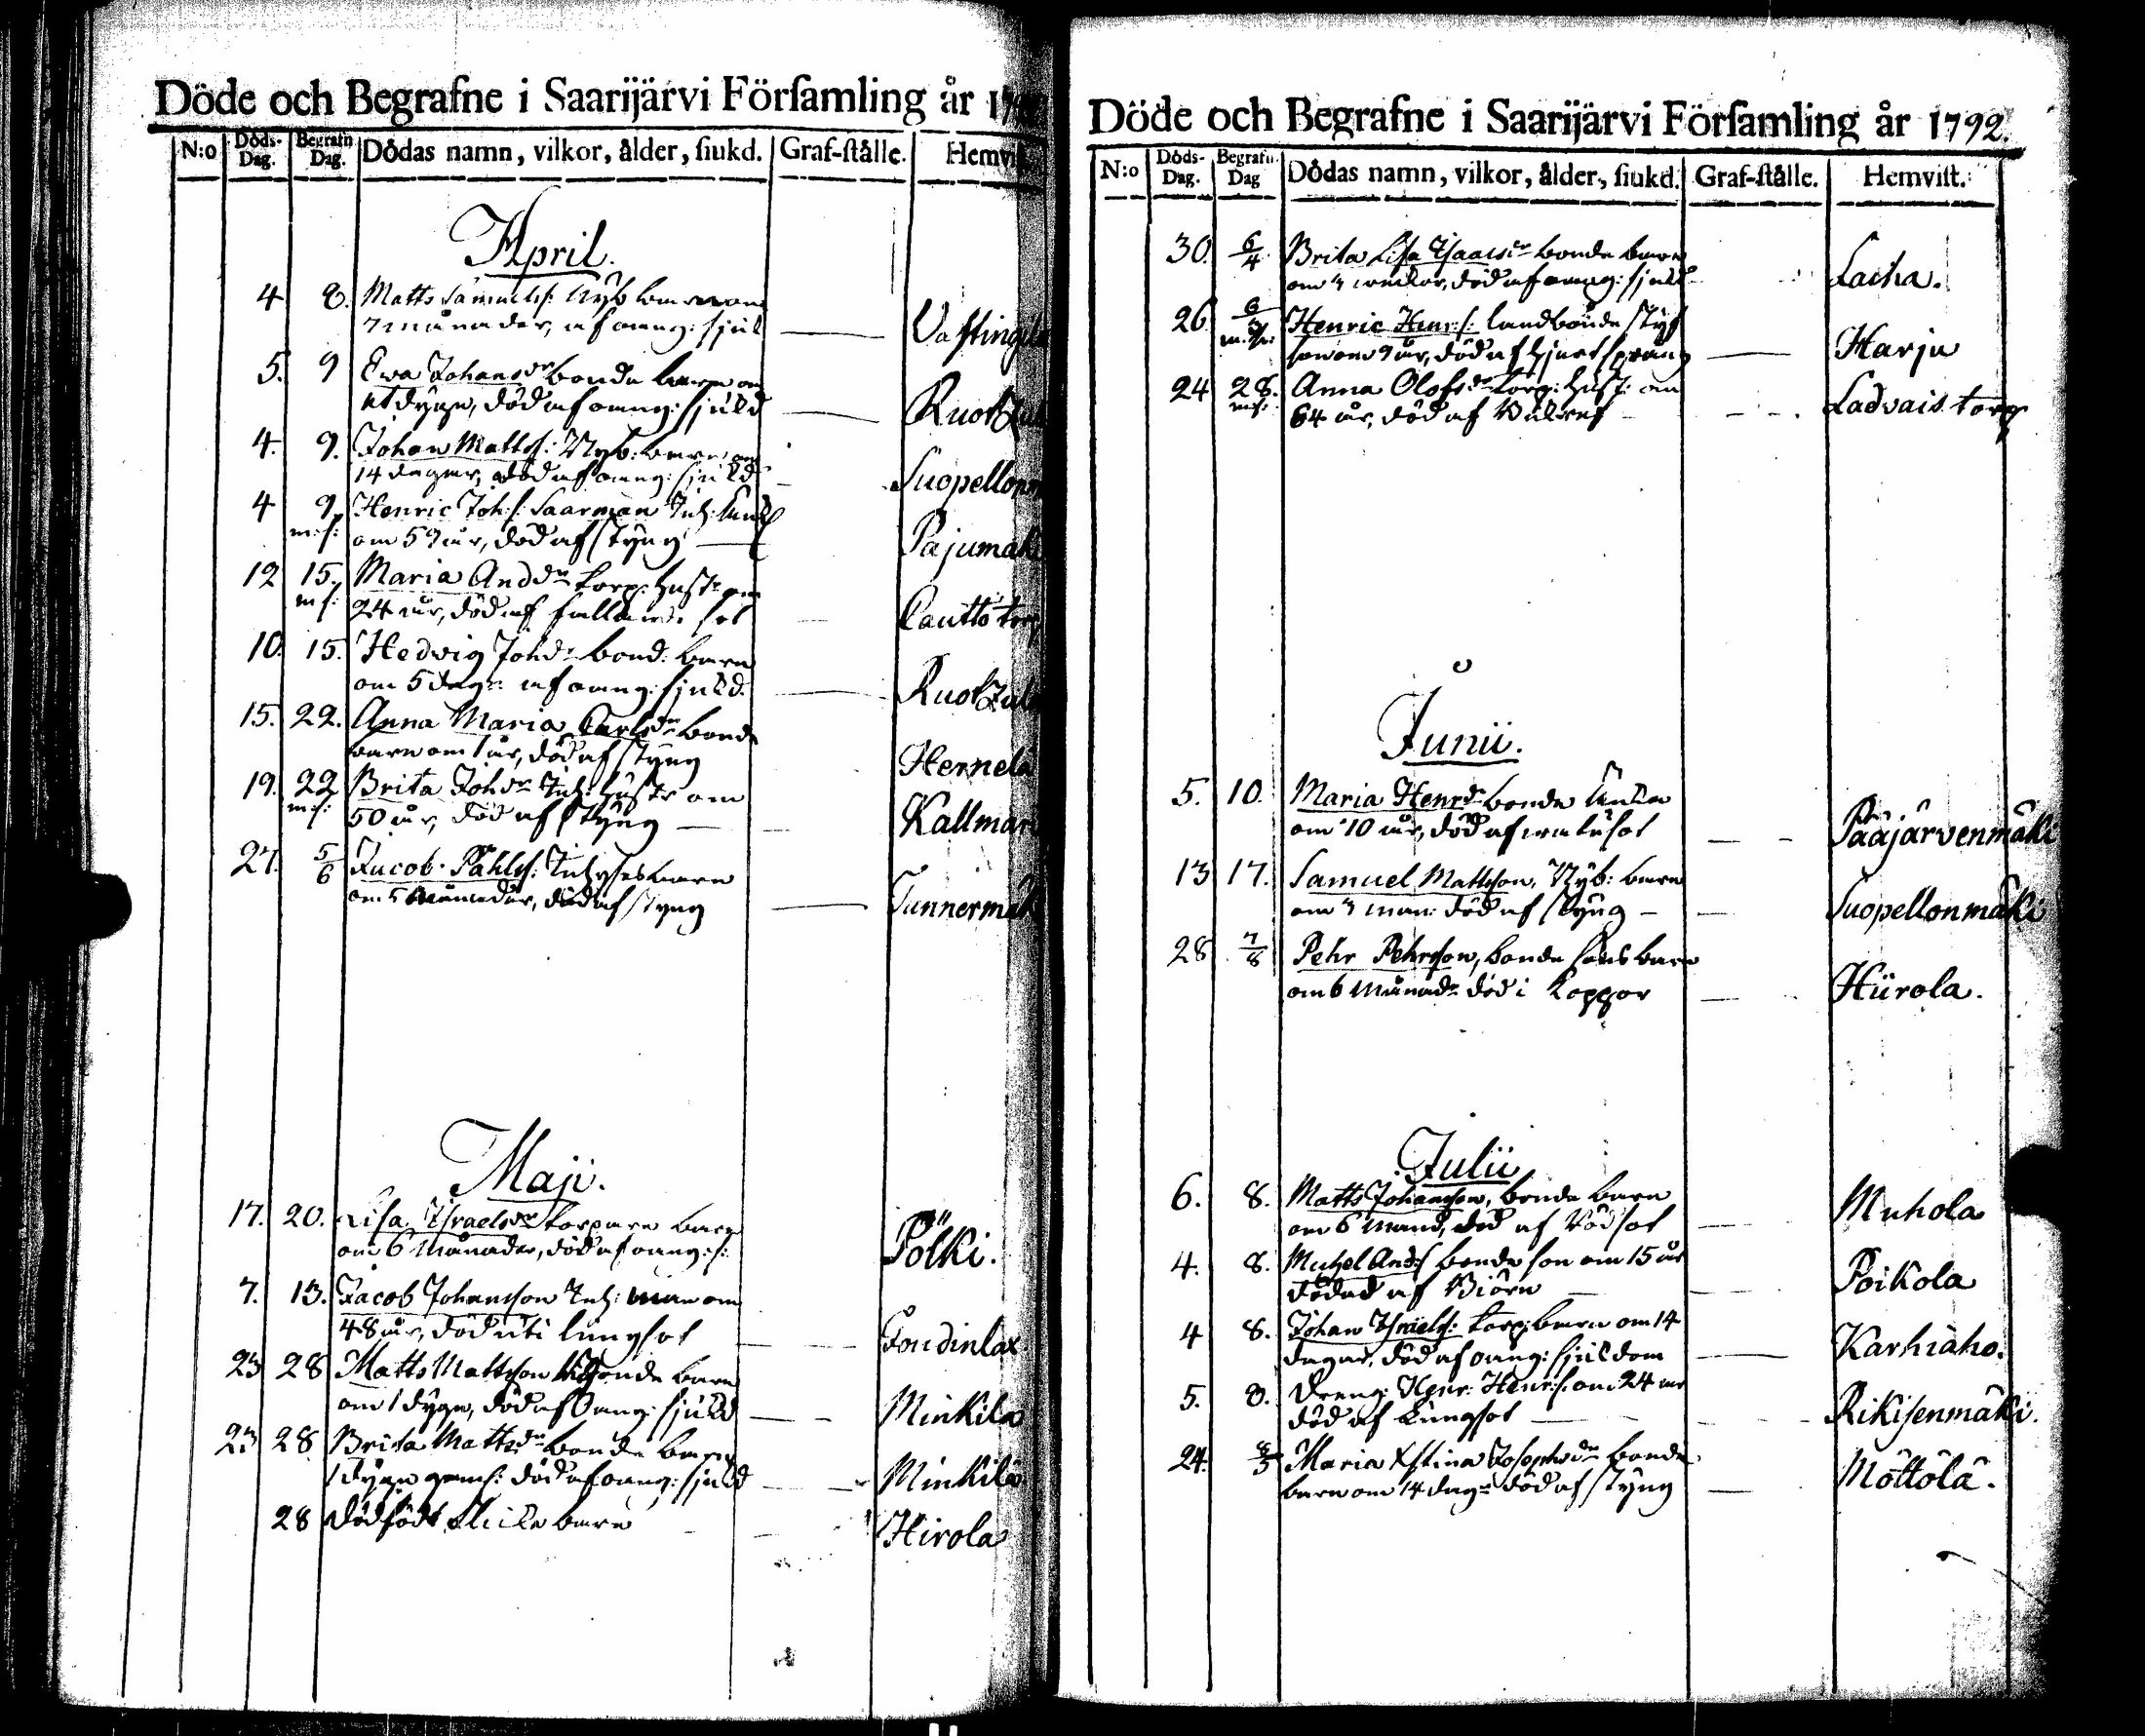 Döde och Begrafne i Saarijärvi Församling år
N:o Döds-Dag. Begrafn Dag. Dödas namn, vilkor, ålder, siukd. Graf-ställe. Hemvi
April.
4 8. Matts Samuelss: Nyb barn om
7 månader, af oang: sjuk
5. 9 Ewa Johansdr bonde barn om
dygn, död af oang: sjukd Ruot
4. 9. Johan Mattss: Nyb: barn om
14 dagar, död af oang: sjukd Suopellon
4 9. Henric Joh:s: Saarman Inh:
m:s: om 59 år, död af styng Pajumäk
12 15. Maria Anddr torp: hustr om
m s: 24 år, död af fallande sot Cautto torp
10. 15. Hedvig Johdr bond: barn
om 5 dagr af oang: sjukd.
15. 22. Anna Maria Carlsdr bonde
barn om 1 år, död af styng Hernelä
19. 22 Brita Johdr Inh: hustr om
m:s: 50 år, död af styng Kallmari
27. 5/6 Jacob Påhlss: Inhyses barn
om 5 månader, död af styng Tunnermäk
Maji.
17. 20. Lisa Israelsdr torpare barn
om 6 månader, död af oang: s: Pölki.
7. 13. Jacob Johansson Inh: man om
48 år, död uti lungsot
23 28 Matts Mattsson bonde barn
om 1 dygn, död af oang: sjukd Minkila
23 28 Brita Mattsdr bonde barn
1 dygn gam: död af oang: sjukd Minkila
28 Dödfödt flicke barn Hirola
Döde och Begrafne i Saarijärvi Församling år 1792.
N:o Döds-Dag. Begrafn. Dag Dödas namn, vilkor, ålder, siukd. Graf-ställe. Hemvist.
30. 6/4 Brita Lisa Isaacsdr bonde barn
om 3 veckor, död af oang: sjukd Lacha.
26. Henric Henr:s: landbonde styf
son om 9 år, död af hjertsprång Harju
24 28. Anna Olofsdr torp: hust: om
m:s: 64 år, död af Ladvais torp
Junii.
5. 10. Maria Henrdr bonde
om 10 år, död af Pääjärvenmäki
13 17. Samuel Mattsson, Nyb: barn
om 3 mån: död af styng Suopellonmäki
28 7/8 Pehr Pehrsson, bonde sons barn
om 6 månadr död i koppor Hiirola.
Julii
6. 8. Matts Johansson, bonde barn
om 6 månd, död af rödsot Muhola
4. 8. Michel Ands bonde son om 15 år
dödad af Biörn Poikola
4 8. Johan Israels: torp: barn om 14
dagar, död af oang: sjukdom Karhiaho.
5. 8. Dreng: Henr: Henr:s: om 24 år
död af lungsot Rikisenmäki.
24. Maria Xstina Josephsdr bonde
barn om 14 dagr död af styng Möttölä.